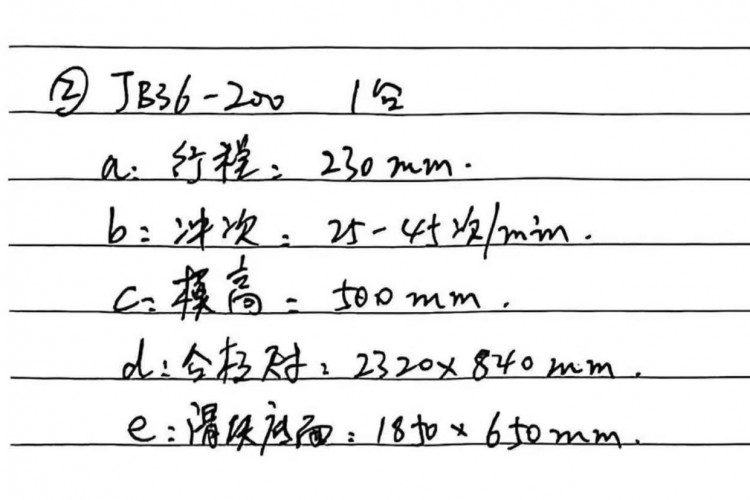 ② JB36-200 1台
a: 行程: 230 mm.
b: 冲次: 25-45次/min.
c: 模高: 500 mm.
d: 台板尺寸: 2320×840 mm.
e: 滑块底面: 1850×650 mm.